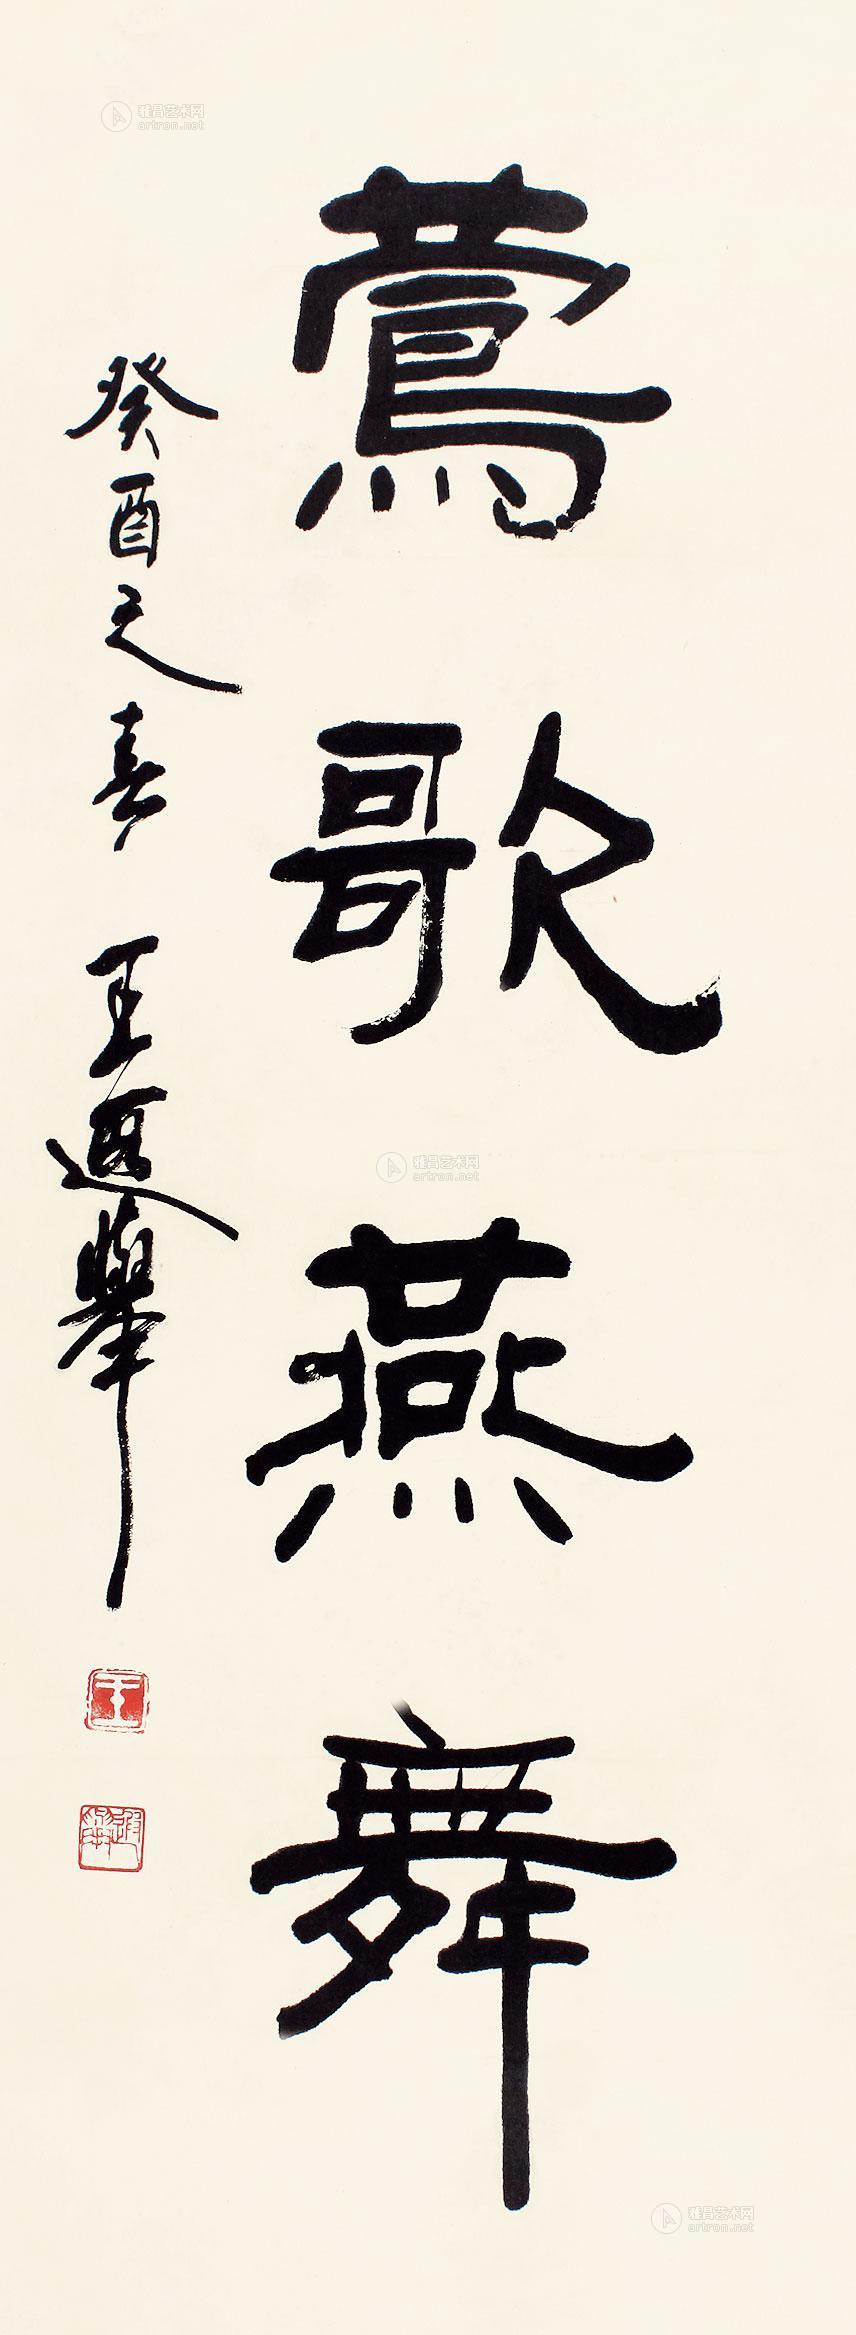 鶯歌燕舞
癸酉之春 王遐舉
王
雅昌艺术网
artron.net
雅昌艺术网
artron.net
雅昌艺术网
artron.net